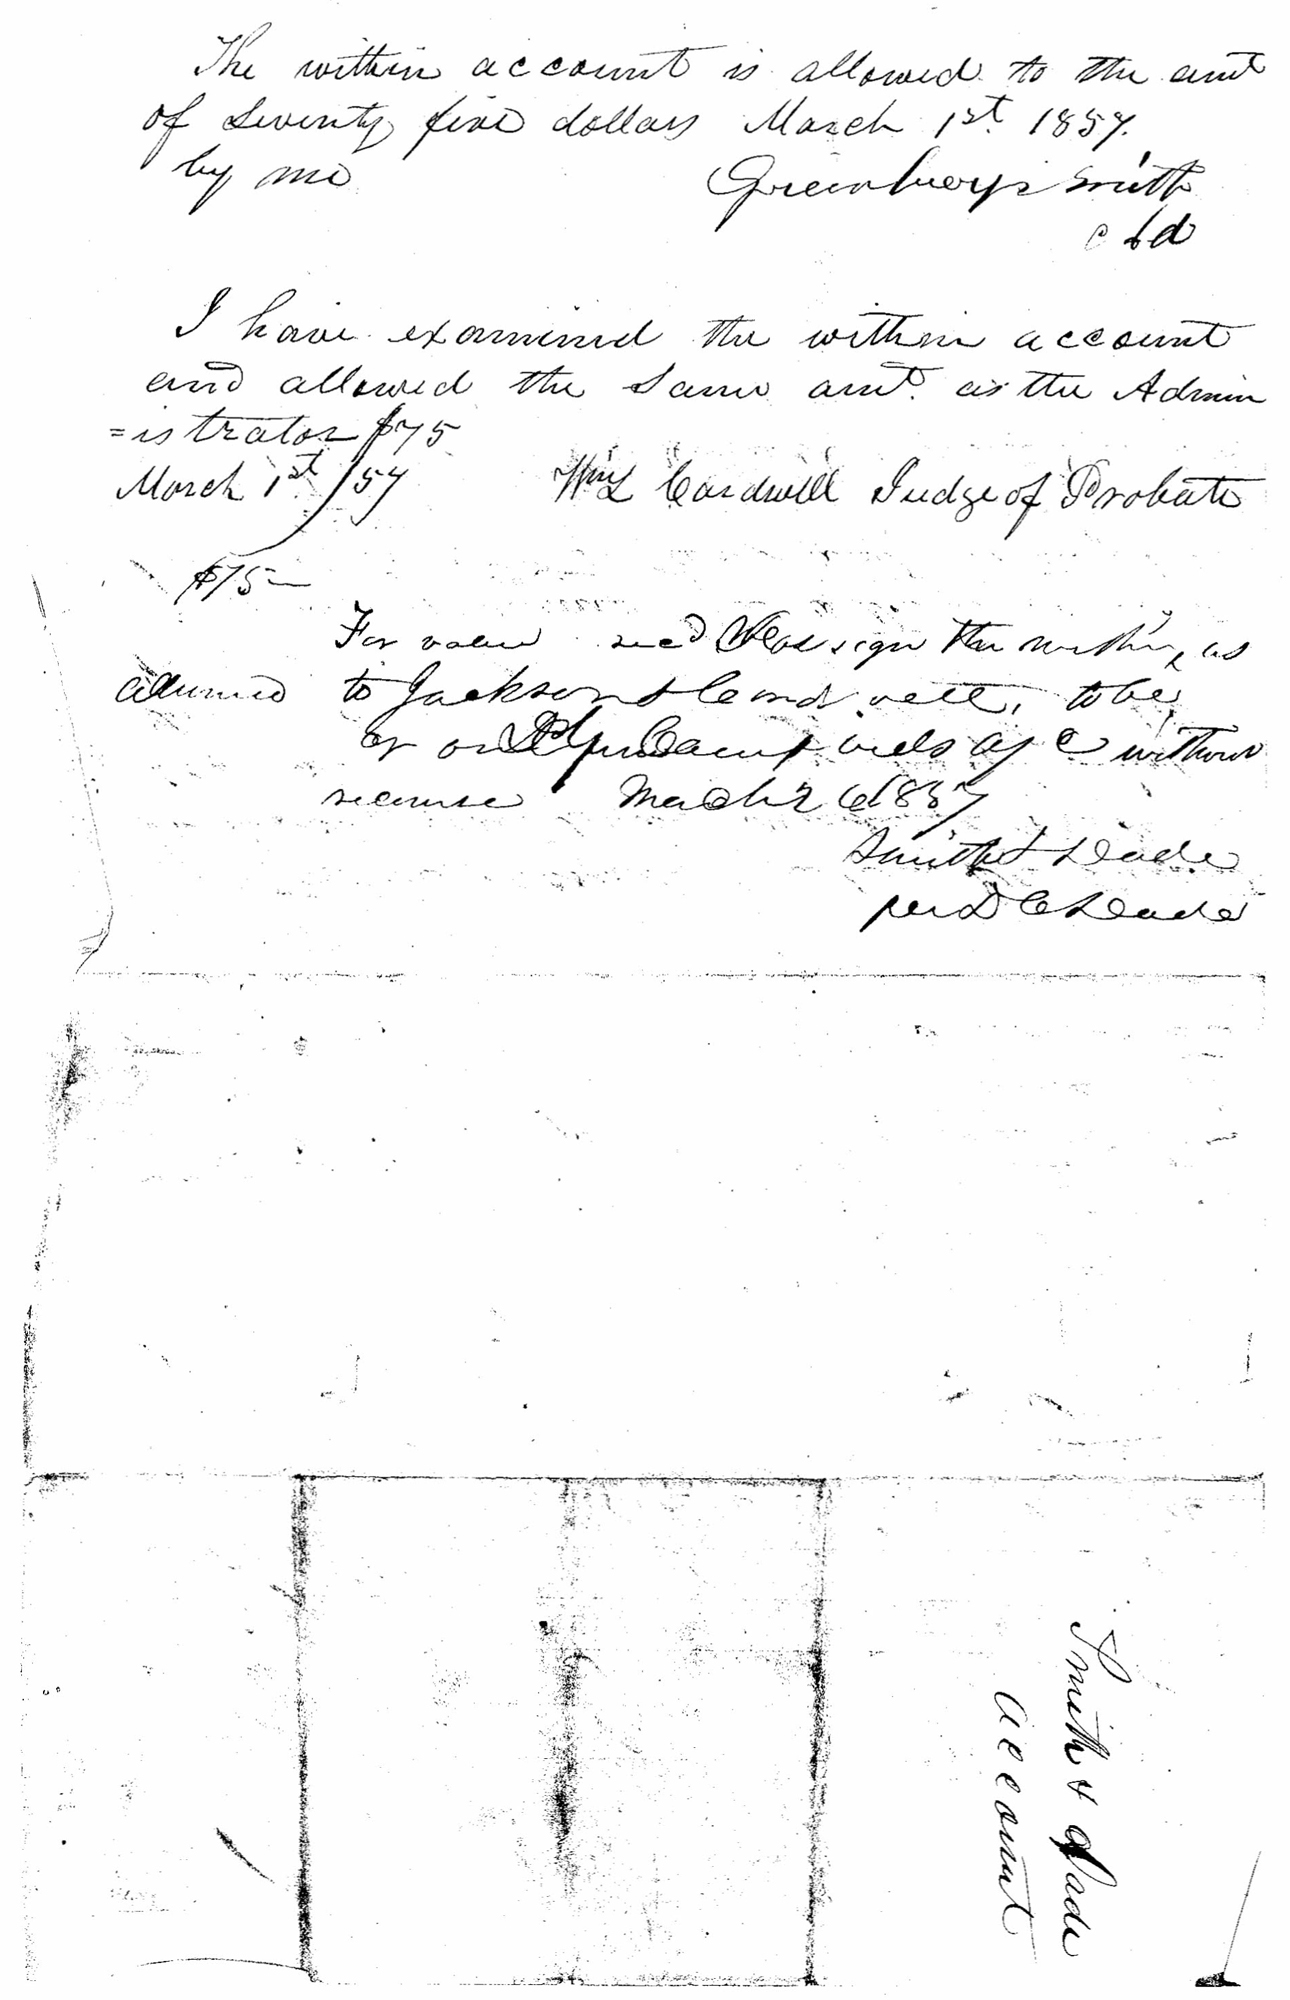 The within account is allowed to the amt
of Seventy five dollars March 1st 1857.
by me Greenberry Smith
I have examined the within account
and allowed the same amt. as the Admin
=istrator $75
March 1st /57 Wm L Cardwell Judge of Probate
$75—
For value recd assign the within, as
allowed to Jackson & to be
without
recourse March 1857
Smith & Slade
per D C Slade
Smith & Slade
account